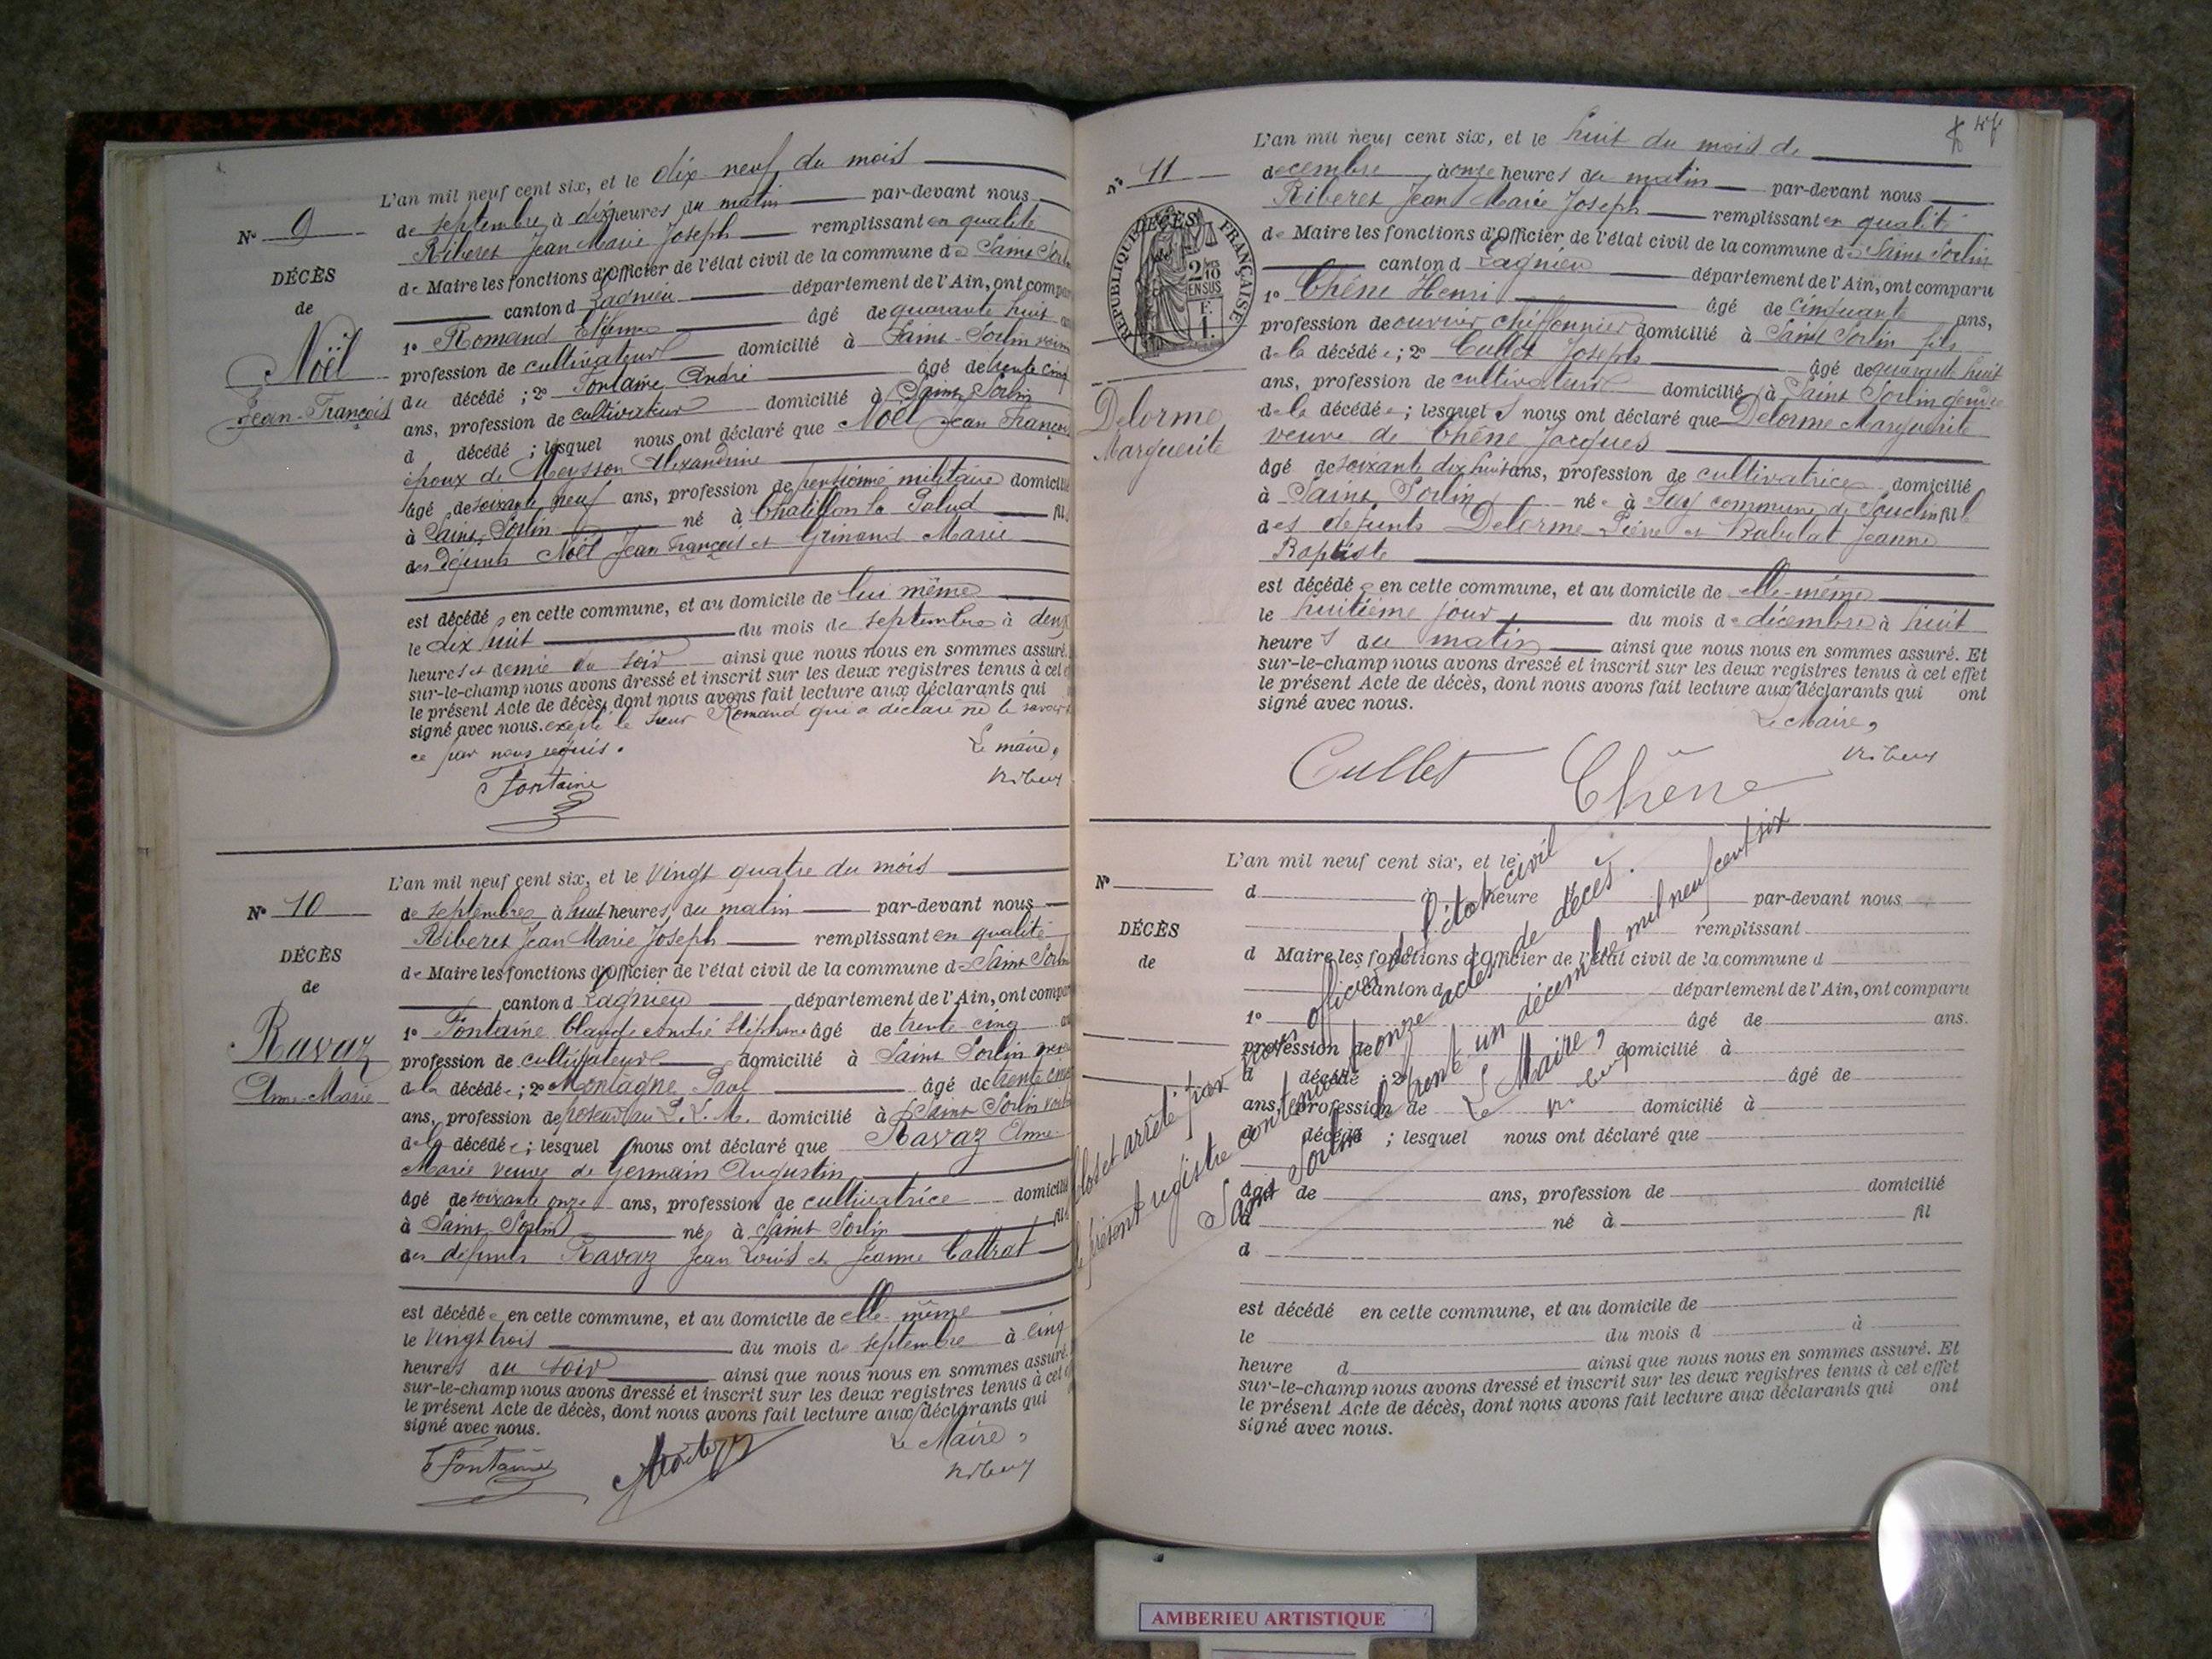 L'an mil neuf cent six, et le dix-neuf du mois
de septembre à dix heures du matin par-devant nous
Riberet Jean Marie Joseph remplissant en qualité
de Maire les fonctions d'Officier de l'état civil de la commune de Saint Sorlin
canton d Lagnieu département de l'Ain, ont compar
1º Romand Etienne âgé de quarante huit
profession de cultivateur domicilié à Saint-Sorlin
du décédé ; 2º Fontaine André âgé de trente cinq
ans, profession de cultivateur domicilié à Saint Sorlin
d décédé ; lesquel nous ont déclaré que Noël Jean François
époux de Meysson Alexandrine
âgé de soixante neuf ans, profession de pensionné militaire domicilié
à Saint-Sorlin né à Chatillon la Palud fil
des défunts Noël Jean François et Grinand Marie
est décédé en cette commune, et au domicile de lui même
le dix huit du mois de septembre à deux
heures et demie du soir ainsi que nous nous en sommes assuré.
sur-le-champ nous avons dressé et inscrit sur les deux registres tenus à cet e
le présent Acte de décès, dont nous avons fait lecture aux déclarants qui
signé avec nous. excepté le sieur Romand qui a déclaré ne le savoir
ce par nous requis.
Le maire,
Fontaine
Riberet
Nº 9
DÉCÈS
de
Noël
Jean-François
L'an mil neuf cent six, et le vingt quatre du mois
de septembre à huit heures du matin par-devant nous
Riberet Jean Marie Joseph remplissant en qualité
de Maire les fonctions d'Officier de l'état civil de la commune de Saint Sorlin
canton d Lagnieu département de l'Ain, ont compar
1º Fontaine Claude André Stéphane âgé de trente-cinq
profession de cultivateur domicilié à Saint Sorlin
de la décédée ; 2º Montagne Paul âgé de trente cinq
ans, profession de poseur au P. L. M. domicilié à Saint Sorlin
de la décédée ; lesquel nous ont déclaré que Ravaz Anne-
Marie veuve de Germain Augustin
âgé de soixante onze ans, profession de cultivatrice domicilié
à Saint-Sorlin née à Saint Sorlin fil
des défunts Ravaz Jean Louis et Jeanne Cattrat
est décédée en cette commune, et au domicile de elle-même
le vingt trois du mois de septembre à cinq
heures du soir ainsi que nous nous en sommes assuré.
sur-le-champ nous avons dressé et inscrit sur les deux registres tenus à cet e
le présent Acte de décès, dont nous avons fait lecture aux déclarants qui
signé avec nous.
Le Maire,
Fontaine
Riberet
Nº 10
DÉCÈS
de
Ravaz
Anne-Marie
L'an mil neuf cent six, et le huit du mois de
decembre à onze heures du matin par-devant nous
Riberet Jean Marie Joseph remplissant en qualité
de Maire les fonctions d'Officier de l'état civil de la commune de Saint Sorlin
canton d Lagnieu département de l'Ain, ont comparu
1º Chêne Henri âgé de Cinquante ans,
profession de ouvrier chiffonnier domicilié à Saint Sorlin fils
de la décédée ; 2º Cullet Joseph âgé de quarante huit
ans, profession de cultivateur domicilié à Saint Sorlin gendre
de la décédée ; lesquels nous ont déclaré que Delorme Marguerite
veuve de Chêne Jacques
âgé de soixante dix huit ans, profession de cultivatrice domicilié
à Saint Sorlin née à Soy commune de Souclin fil
des defunts Delorme Pierre et Rabolat Jeanne
Baptiste
est décédée en cette commune, et au domicile de elle-même
le huitième jour du mois de décembre à huit
heures du matin ainsi que nous nous en sommes assuré. Et
sur-le-champ nous avons dressé et inscrit sur les deux registres tenus à cet effet
le présent Acte de décès, dont nous avons fait lecture aux déclarants qui ont
signé avec nous.
Le Maire,
Cullet Chêne Riberet
Nº 11
RÉPUBLIQUE FRANÇAISE
DÉCÈS
de
2/10 EN SUS
F. 1.
Delorme
Marguerite
L'an mil neuf cent six, et le
d à heure par-devant nous
remplissant
d Maire les fonctions d'Officier de l'état civil de la commune d
canton d département de l'Ain, ont comparu
1º âgé de ans.
profession de domicilié à
d décédé ; 2º âgé de
ans, profession de domicilié à
d décédé ; lesquel nous ont déclaré que
âgé de ans, profession de domicilié
à né à fil
d
est décédé en cette commune, et au domicile de
le du mois d à
heure d ainsi que nous nous en sommes assuré. Et
sur-le-champ nous avons dressé et inscrit sur les deux registres tenus à cet effet
le présent Acte de décès, dont nous avons fait lecture aux déclarants qui ont
signé avec nous.
Nº
DÉCÈS
de
Clos et arrêté par nous officier de l'état civil
le présent registre contenant onze actes de décès.
Saint Sorlin le trente un décembre mil neuf cent six
Le Maire,
Riberet
AMBERIEU ARTISTIQUE